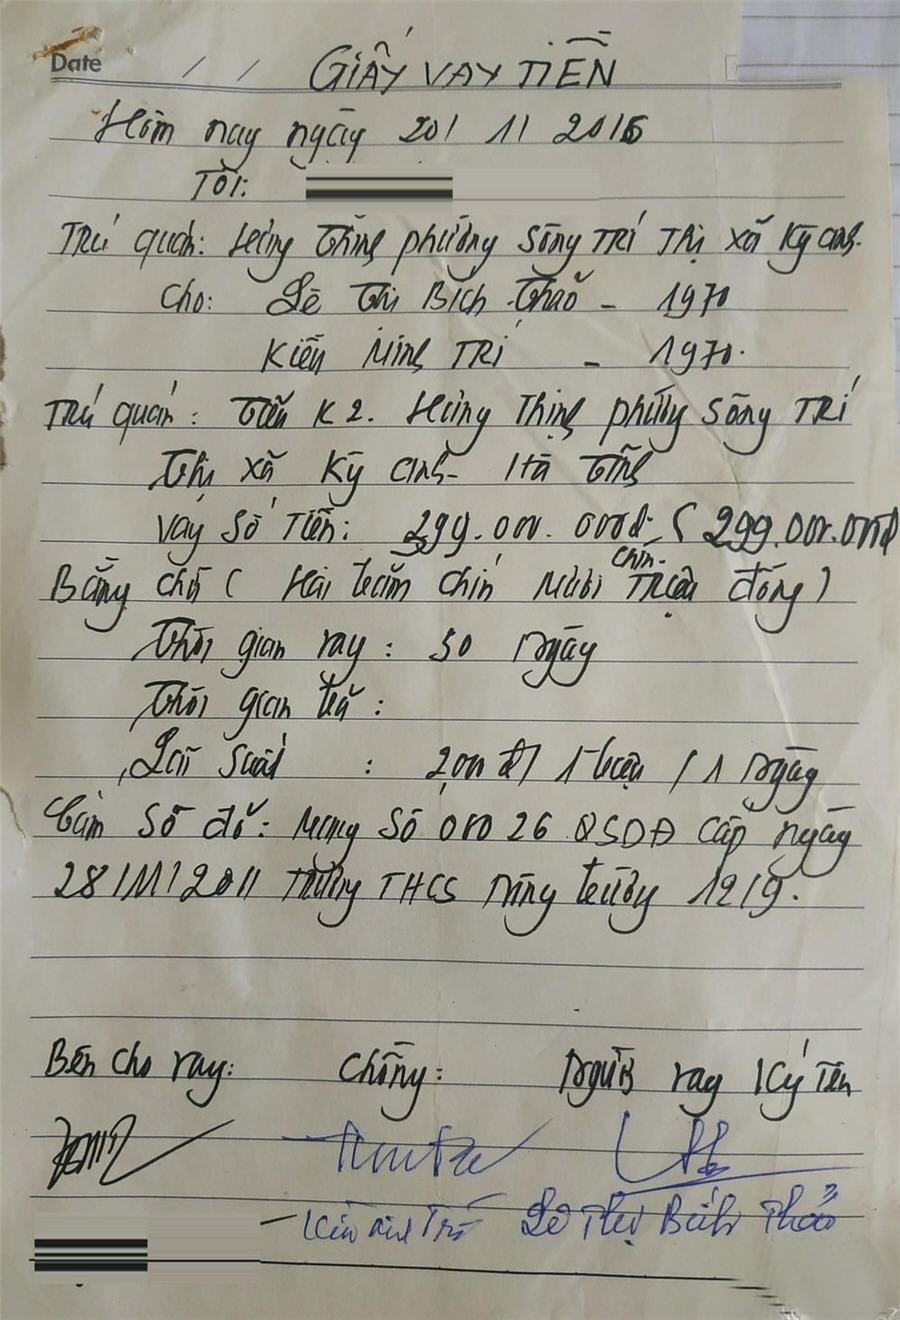 Date / / GIẤY VAY TIỀN
Hôm nay ngày 20/ 11 2016
Tôi:
Trú quán: Hưng Thịnh phường Sông Trí Thị xã Kỳ anh.
Cho: Lê Thị Bích Thảo - 1970
Kiều Minh Trí - 1970.
Trú quán: K2. Hưng Thịnh phường Sông Trí
Thị xã Kỳ anh - Hà Tĩnh
Vay số tiền: 299.000.000đ ( 299.000.000đ
Bằng chữ ( Hai trăm chín mươi chín Triệu đồng )
Thời gian vay: 50 Ngày
Thời gian trả:
Lãi suất : 2,000 đ/ 1 triệu / 1 Ngày
Cầm Sổ đỏ: Mang Số 00026 QSDĐ cấp ngày
28/11/2011 THCS 1219.
Bên cho vay: Chồng: Người vay Ký Tên
Lê Thị Bích Thảo